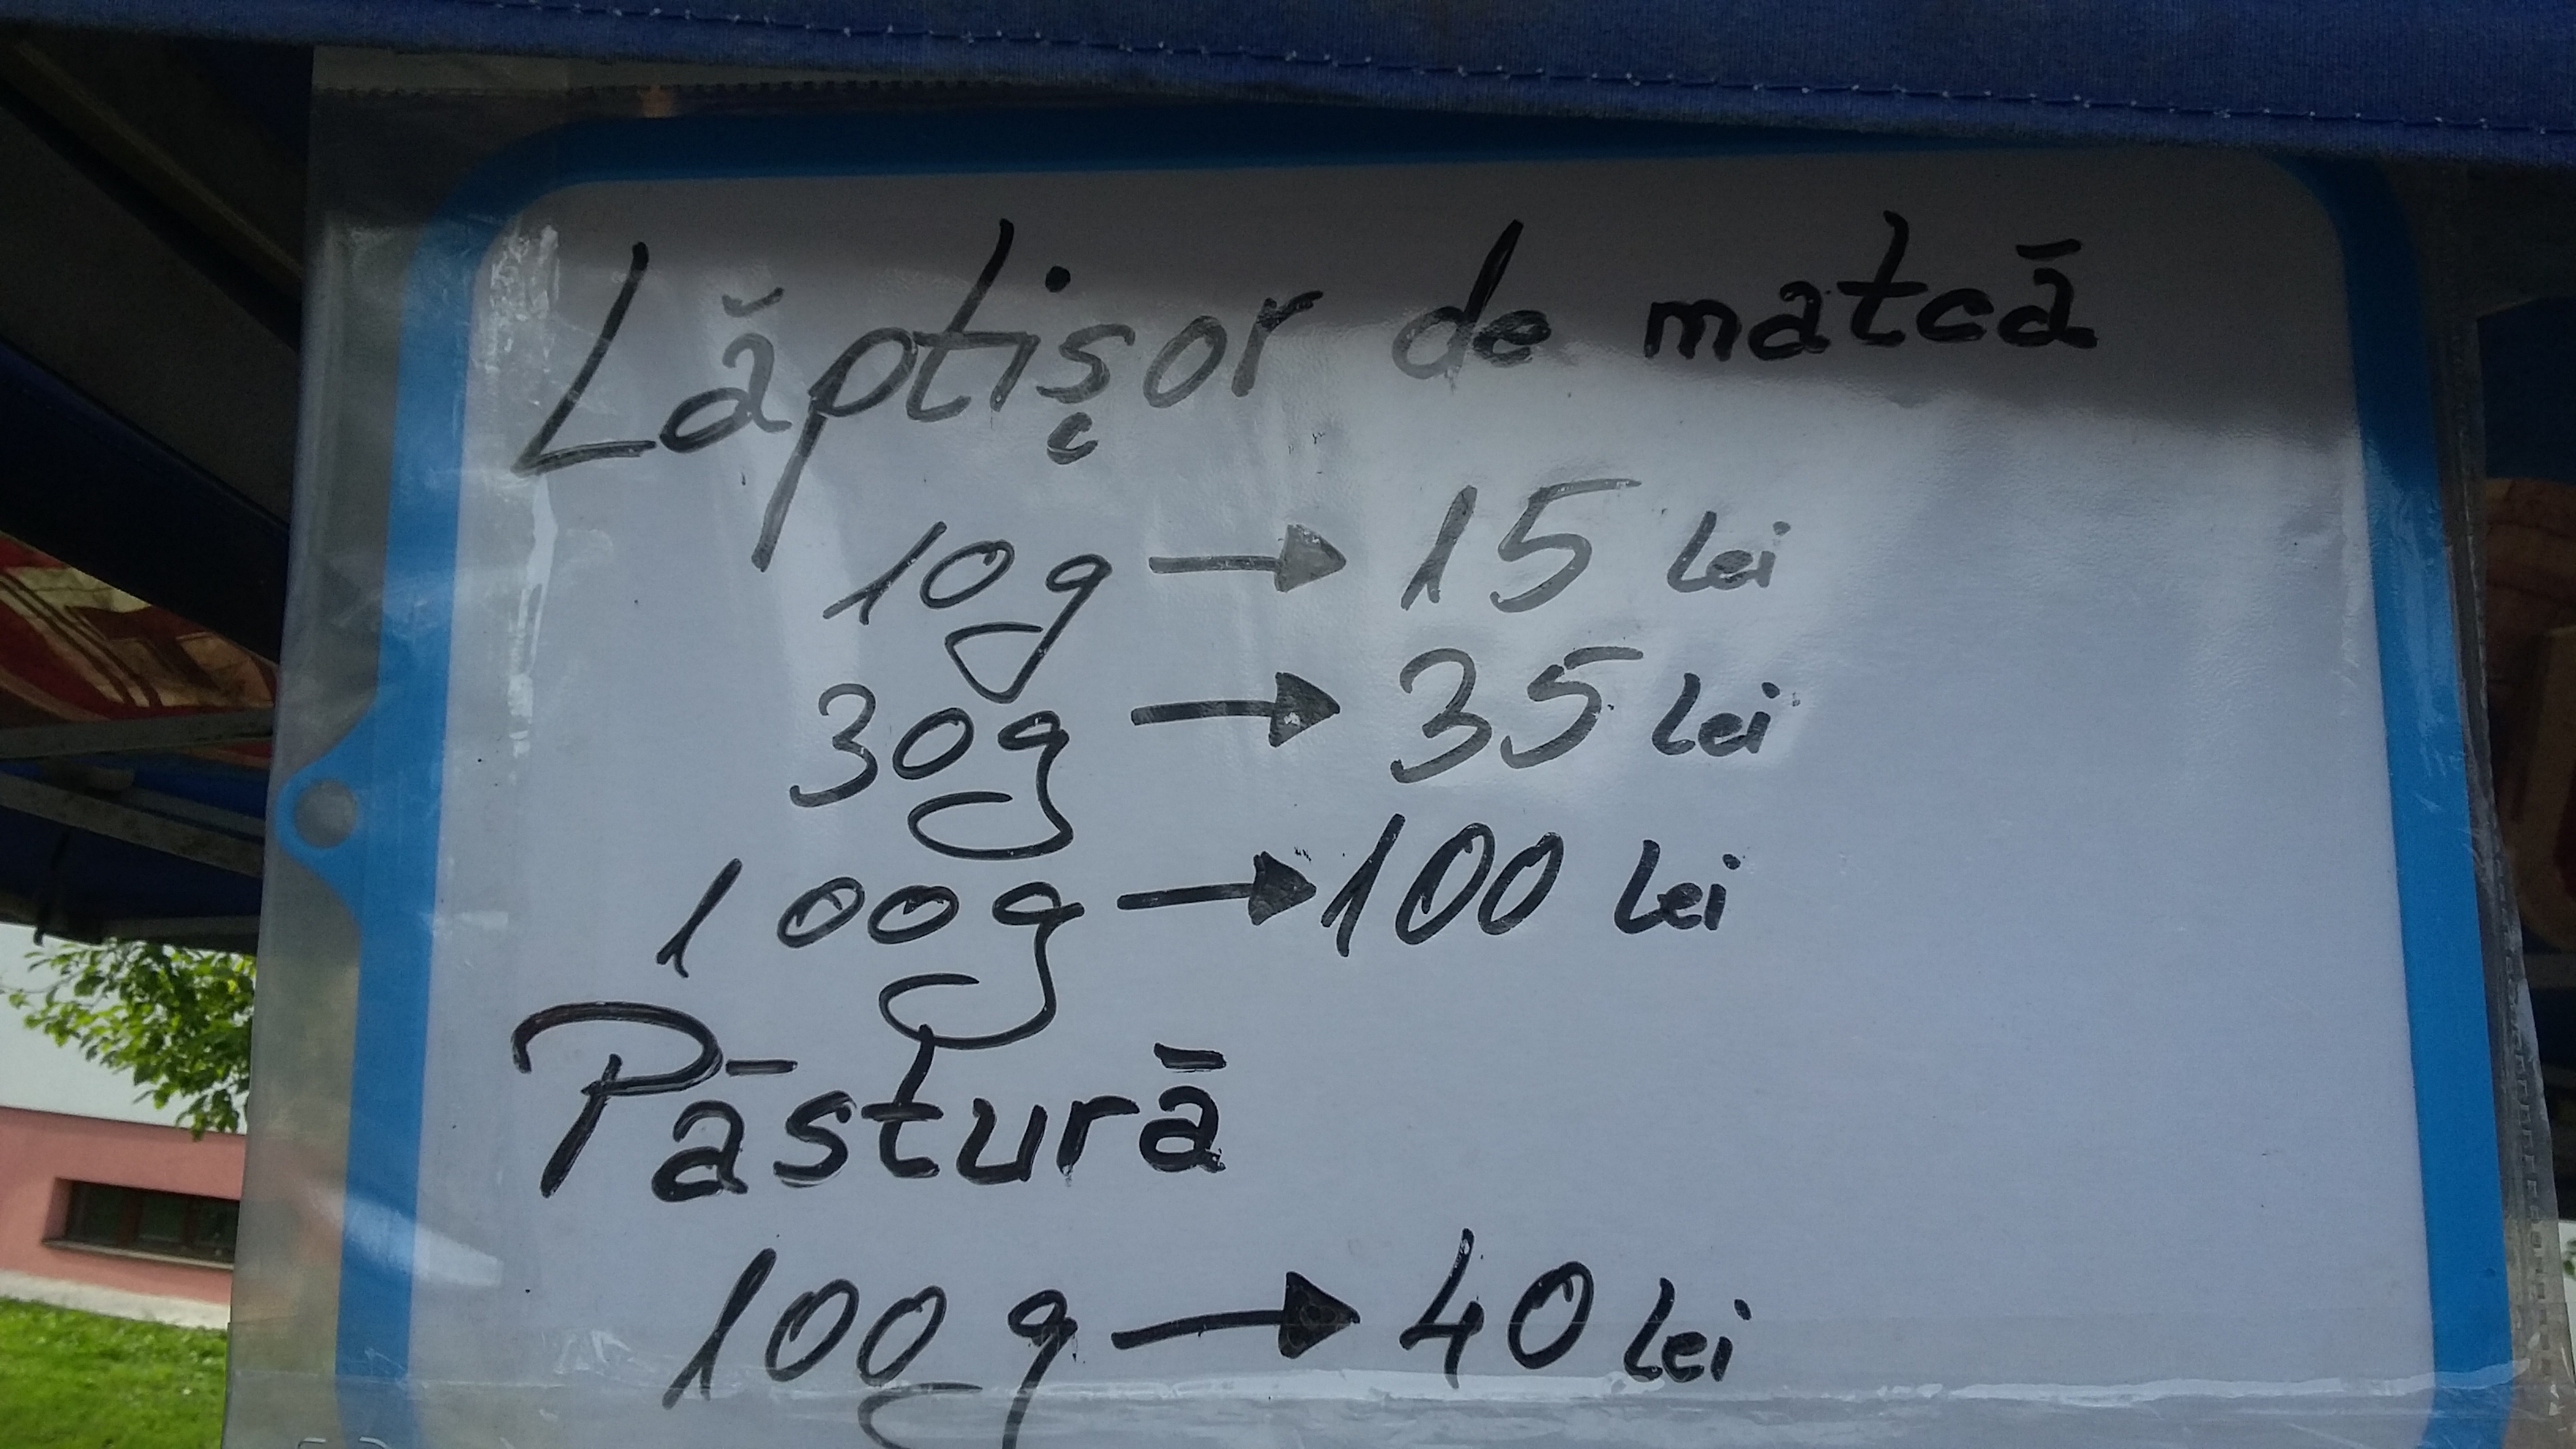 Lăptișor de matcă
10g → 15 Lei
30g → 35 Lei
100g → 100 Lei
Păstură
100g → 40 Lei